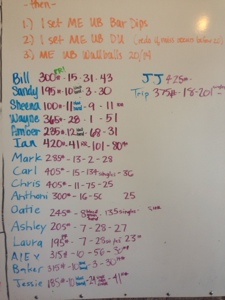 -then-
1) 1 set ME UB Bar Dips
2) 1 set ME UB DU
3) ME UB Wallballs 20/14
Bill 300# - 15 - 31 - 43
JJ 425#
Sandy 195# - 10 - 3 - 30
Trip 375# - 18 - 201
Sheena 100# - 11 - 9 - 11
Wayne 365# - 28 - 1 - 51
Amber 235# - 12 - 68 - 31
Ian 420# - 41 - 101 - 80
Mark 285# - 13 - 2 - 28
Carl 405# - 15 - 134 singles - 36
Chris 405# - 11 - 75 - 25
Anthoni 300# - 16 - 50 25
Oatie 245# - 8 135 singles
Ashley 205# - 7 - 28 - 27
Laura 195# - 7 - 25
Alex 315# - 10 - 56
Baker 315# - 3 - 30
Jessie 185# - 41